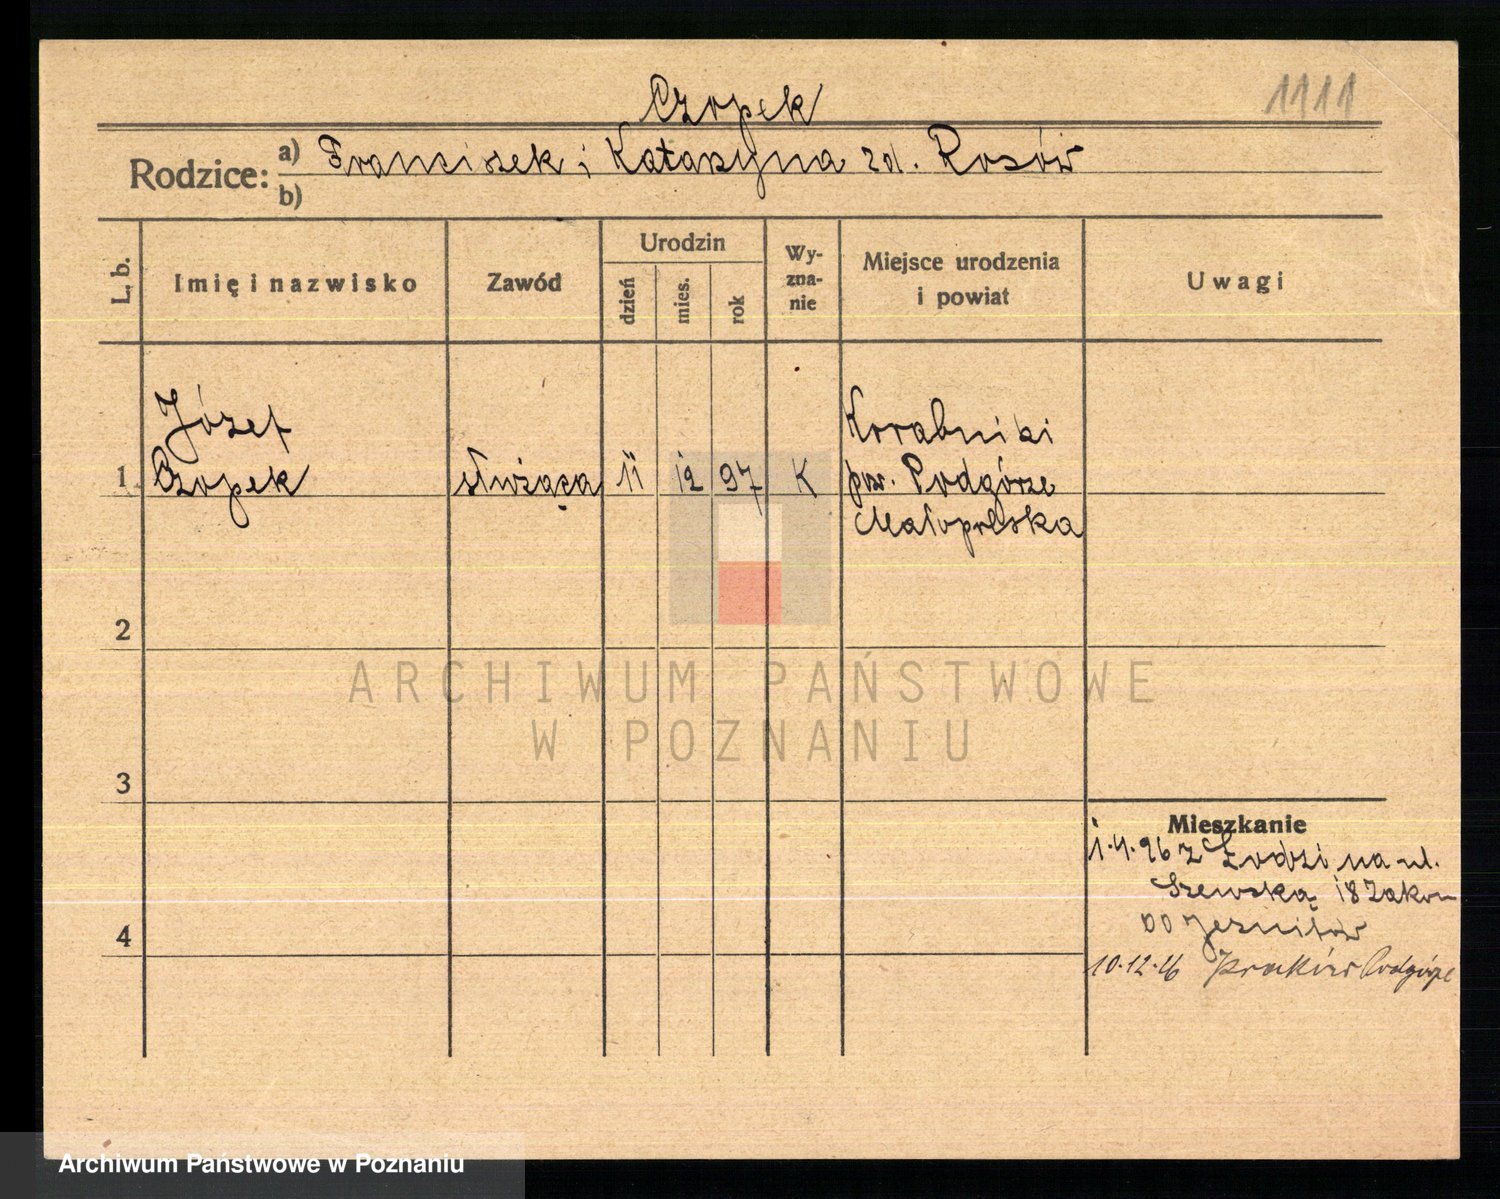 1111
Czopek
Rodzice: a) Franciszek i Katarzyna zd. Rosów
b)
L. b. Imię i nazwisko Zawód Urodzin dzień mies. rok Wy-zna-nie Miejsce urodzenia i powiat Uwagi
Józef Korabniki
1 Czopek służąca 11 12 97 K pow. Podgórze
Małopolska
2
ARCHIWUM PAŃSTWOWE
W POZNANIU
3
Mieszkanie
1.4.26 z Łodzi na ul.
Szewską 18 Zakon
4 OO Jezuitów
10.12.26 Kraków Podgórze
Archiwum Państwowe w Poznaniu